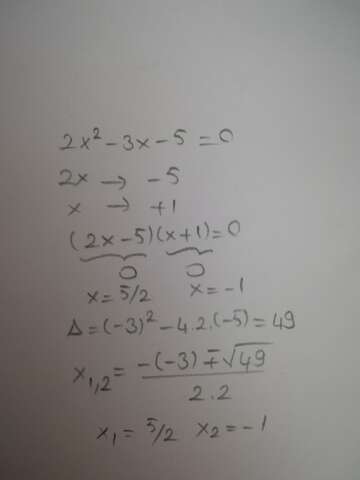 2x² - 3x - 5 = 0
2x → -5
x → +1
(2x-5)(x+1)=0
0 0
x = 5/2 x = -1
Δ = (-3)² - 4.2.(-5) = 49
x₁,₂ = -(-3) ∓ √49 / 2.2
x₁ = 5/2 x₂ = -1